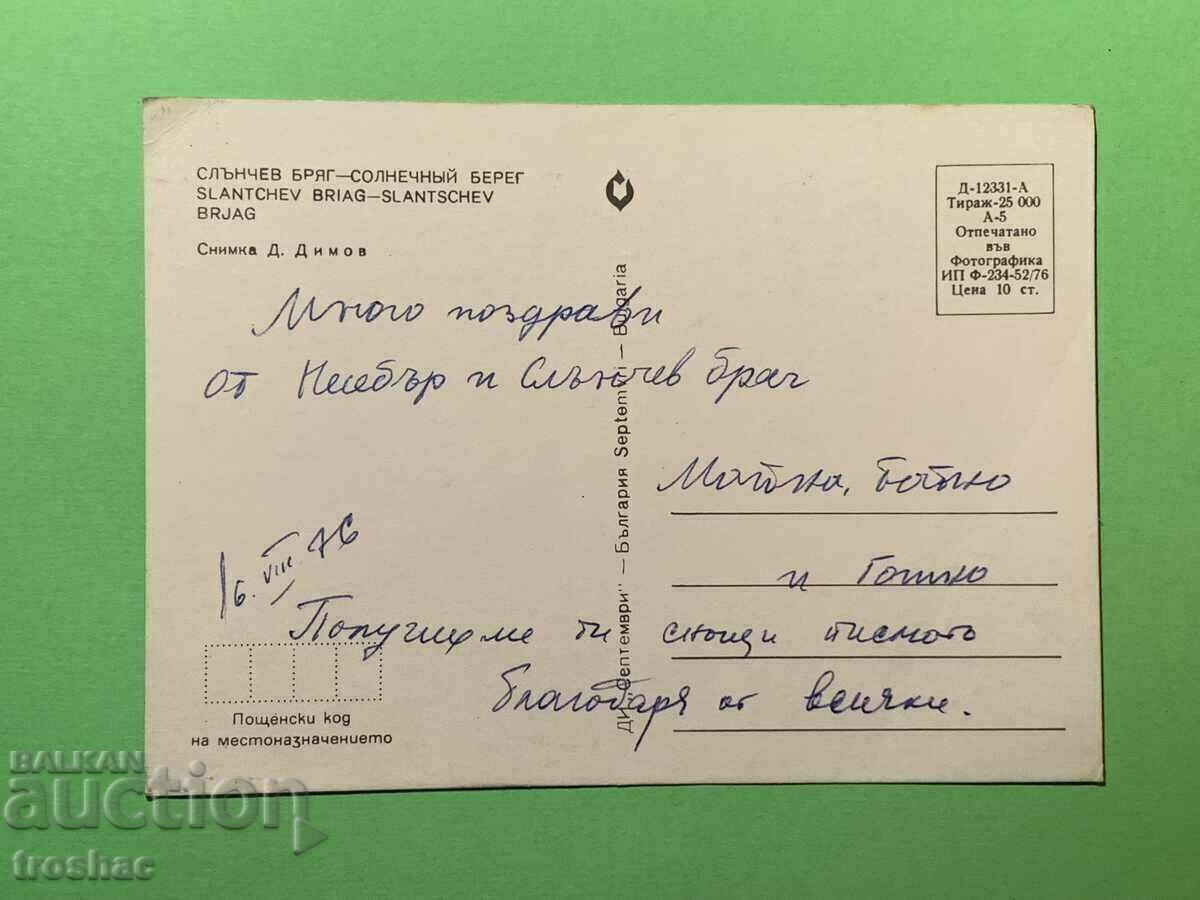 СЛЪНЧЕВ БРЯГ—СОЛНЕЧНЫЙ БЕРЕГ
SLANTCHEV BRIAG—SLANTSCHEV
BRJAG
Снимка Д. Димов
Д-12331-А
Тираж-25 000
А-5
Отпечатано
във
Фотографика
ИП Ф-234-52/76
Цена 10 ст.
ДИ „Септември" — България Septemvri — Bulgaria
Много поздрави
от Несебър и Слънчев бряг
Майка, Татко
и Гошко
16.VIII.76
Получихме ти снощи писмото
благодаря от всички.
Пощенски код
на местоназначението
BALKAN
auction
troshac